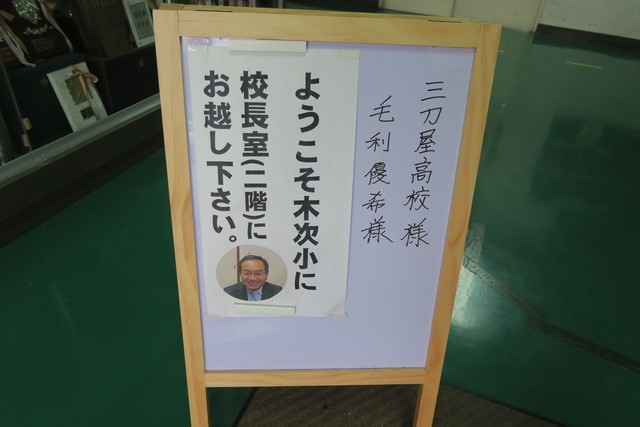 三刀屋高校様
毛利優希様
ようこそ木次小に
校長室(二階)に
お越し下さい。